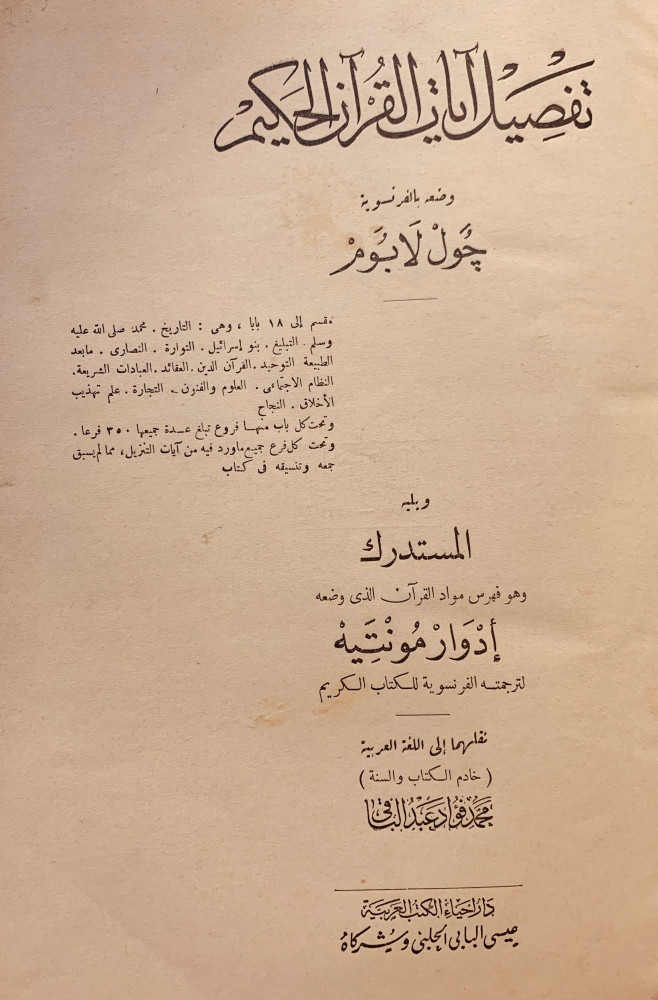 تفصيل آيات القرآن الحكيم
وضعه بالفرنسوية
چُول لَابُوم
مقسم إلى ١٨ بابا ، وهى : التاريخ . محمد صلى الله عليه
وسلم . التبليغ . بنو إسرائيل . التوراة . النصارى . مابعد
الطبيعة التوحيد . القرآن الدين . العقائد . العبادات الشريعة .
النظام الاجتماعى . العلوم والفنون . التجارة . علم تهذيب
الأخلاق . النجاح
وتحت كل باب منها فروع تبلغ عدة جميعها ٣٥٠ فرعا .
وتحت كل فرع جميع ماورد فيه من آيات التنزيل ، مما لم يسبق
جمعه وتنسيقه فى كتاب
ويليه
المستدرك
وهو فهرس مواد القرآن الذى وضعه
أدْوَارْ مُونْتِيهْ
لترجمته الفرنسوية للكتاب الكريم
نقلهما إلى اللغة العربية
( خادم الكتاب والسنة )
محمد فؤاد عبد الباقى
دار احياء الكتب العربية
عيسى البابى الحلبى وشركاه